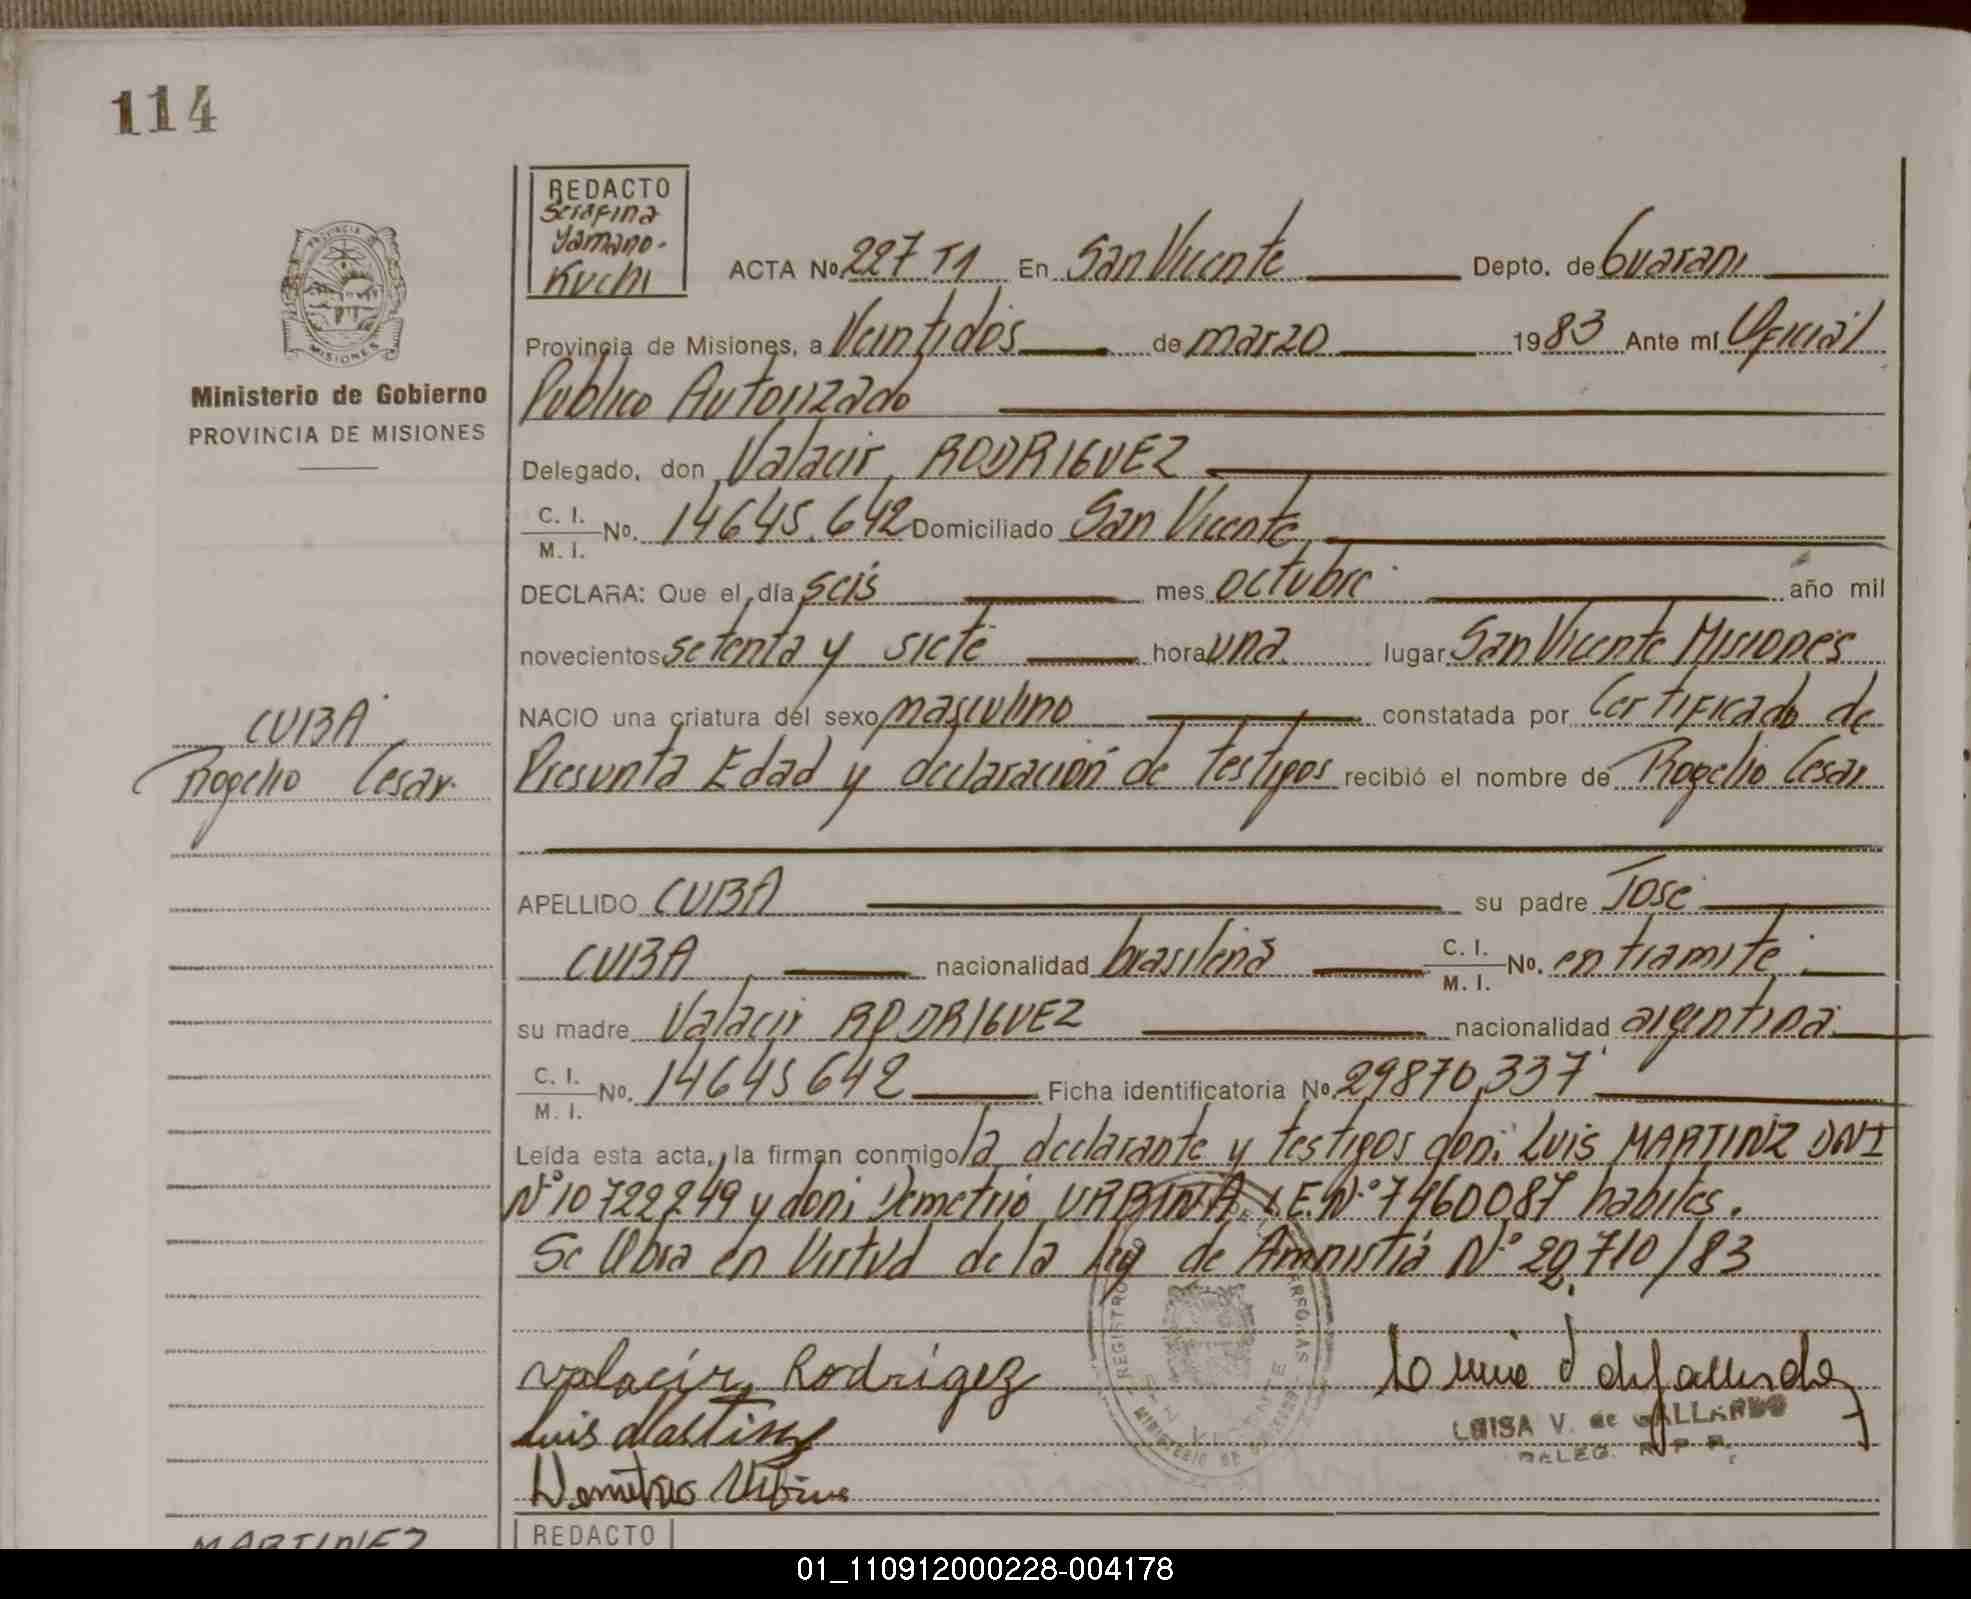 114
REDACTO
Serafina
Yamano-
Kuchi
ACTA No. 227 T1 En San Vicente Depto. de Guarani
PROVINCIA DE
MISIONES
Provincia de Misiones, a Veintidós de marzo 1983 Ante mí Oficial
Ministerio de Gobierno
PROVINCIA DE MISIONES
Público Autorizado
Delegado, don Valacir RODRIGUEZ
C. I.
M. I. No. 14645.642 Domiciliado San Vicente
DECLARA: Que el día seis mes octubre año mil
novecientos setenta y siete hora una lugar San Vicente Misiones
NACIO una criatura del sexo masculino constatada por Certificado de
CUBA
Rogelio Cesar.
Presunta Edad y declaración de testigos recibió el nombre de Rogelio Cesar
APELLIDO CUBA su padre José
CUBA nacionalidad brasilena C. I.
M. I. No. en tramite
su madre Valacir RODRIGUEZ nacionalidad argentina
C. I.
M. I. No. 14645642 Ficha identificatoria No. 29870.337
Leída esta acta, la firman conmigo la declarante y testigos don: Luis MARTINEZ DNI
Nº 10722249 y don: Demetrio URBINA L.E.Nº 7460087 habiles.
Se Obra en Virtud de la ley de Amnistia Nº 22.710/83
Valacir Rodrigez
Luis Martinez
LUISA V. de GALLARDO
DELEG. R. P. P.
Demetrio Urbina
REDACTO
MARTINEZ
01_110912000228-004178